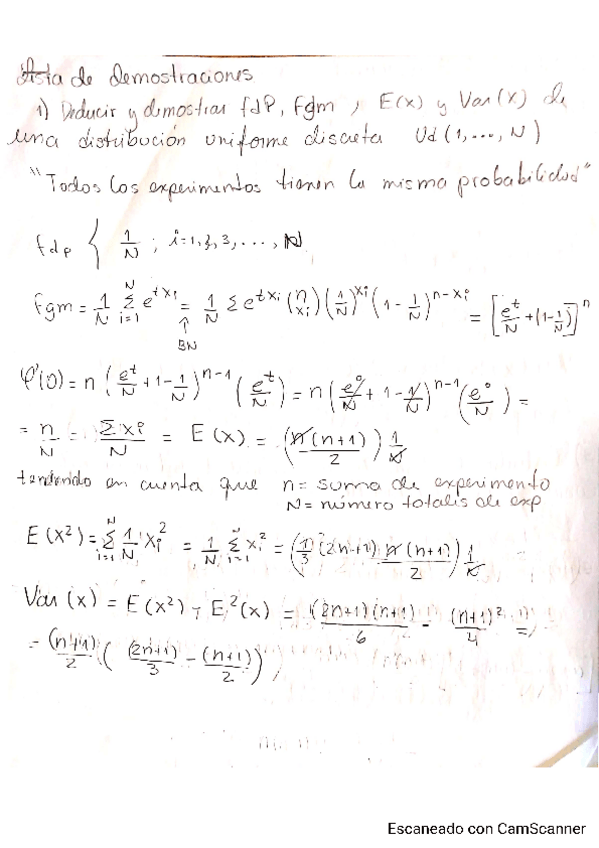 Lista de demostraciones
1) Deducir y demostrar fdP, fgm, E(x) y Var(x) de
una distribución uniforme discreta Ud(1,...,N)
"Todos los experimentos tienen la misma probabilidad"
fdp { 1/N ; i=1,2,3,...,N
fgm = 1/N Σ_{i=1}^{N} e^{t x_i} = 1/N Σ e^{t x_i} (n x_i) (1/N)^{x_i} (1 - 1/N)^{n-x_i} = [e^t/N + (1-1/N)]^n
↑
BN
φ'(0) = n (e^t/N + 1 - 1/N)^{n-1} (e^t/N) = n (e^0/N + 1 - 1/N)^{n-1} (e^0/N) =
= n/N = Σx_i/N = E(x) = (n(n+1)/2) 1/N
teniendo en cuenta que n = suma de experimento
N = número totales de exp
E(x²) = Σ_{i=1}^{N} 1/N x_i² = 1/N Σ_{i=1}^{N} x_i² = (1/3 (2n+1) n(n+1)/2) 1/N
Var(x) = E(x²) - E²(x) = (2n+1)(n+1)/6 - (n+1)²/4 =
= (n+1)/2 ( (2n+1)/3 - (n+1)/2 )
Escaneado con CamScanner